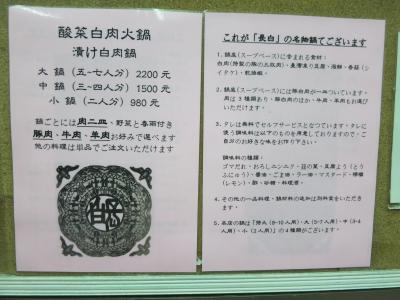 酸菜白肉火鍋
漬け白肉鍋
大 鍋（五-七人分）2200 元
中 鍋（三-四人分）1500 元
小 鍋（二人分）980 元
鍋ごとには肉二皿、野菜と春雨付き
豚肉、牛肉、羊肉お好みで選べます
他の料理は単品でご注文いただけます
これが「長白」の名物鍋でございます
1. 鍋底（スープベース）に含まれる食材：
白肉（特製の豚の三枚肉）、台湾凍り豆腐、海鮮、香菇（シ
イタケ）、乾海蝦。
2. 鍋底（スープベース）には豚白肉が一皿ついています。
肉は３種類あり、豚白肉のほか、牛肉、羊肉もお選び
いただけます。
3. タレは無料でセルフサービスとなっています。タレに
使う調味料は以下のものを用意しておりますので、ご
自分のお好きな味をお作り下さい。
調味料の種類：
ゴマだれ、おろしニンニク、韮の葉、豆腐よう（とう
ふにゅう）、醬油、ごま油、ラー油、マスタード、檸檬
（レモン）、酢、砂糖、料理酒。
4. その他の一品料理、鍋材料の追加は別料金をいただ
きます。
5. 当店の鍋は「特大（8-10人用）、大（5-7人用）、中（3-4
人用）、小（2人用）」の４種類がございます。